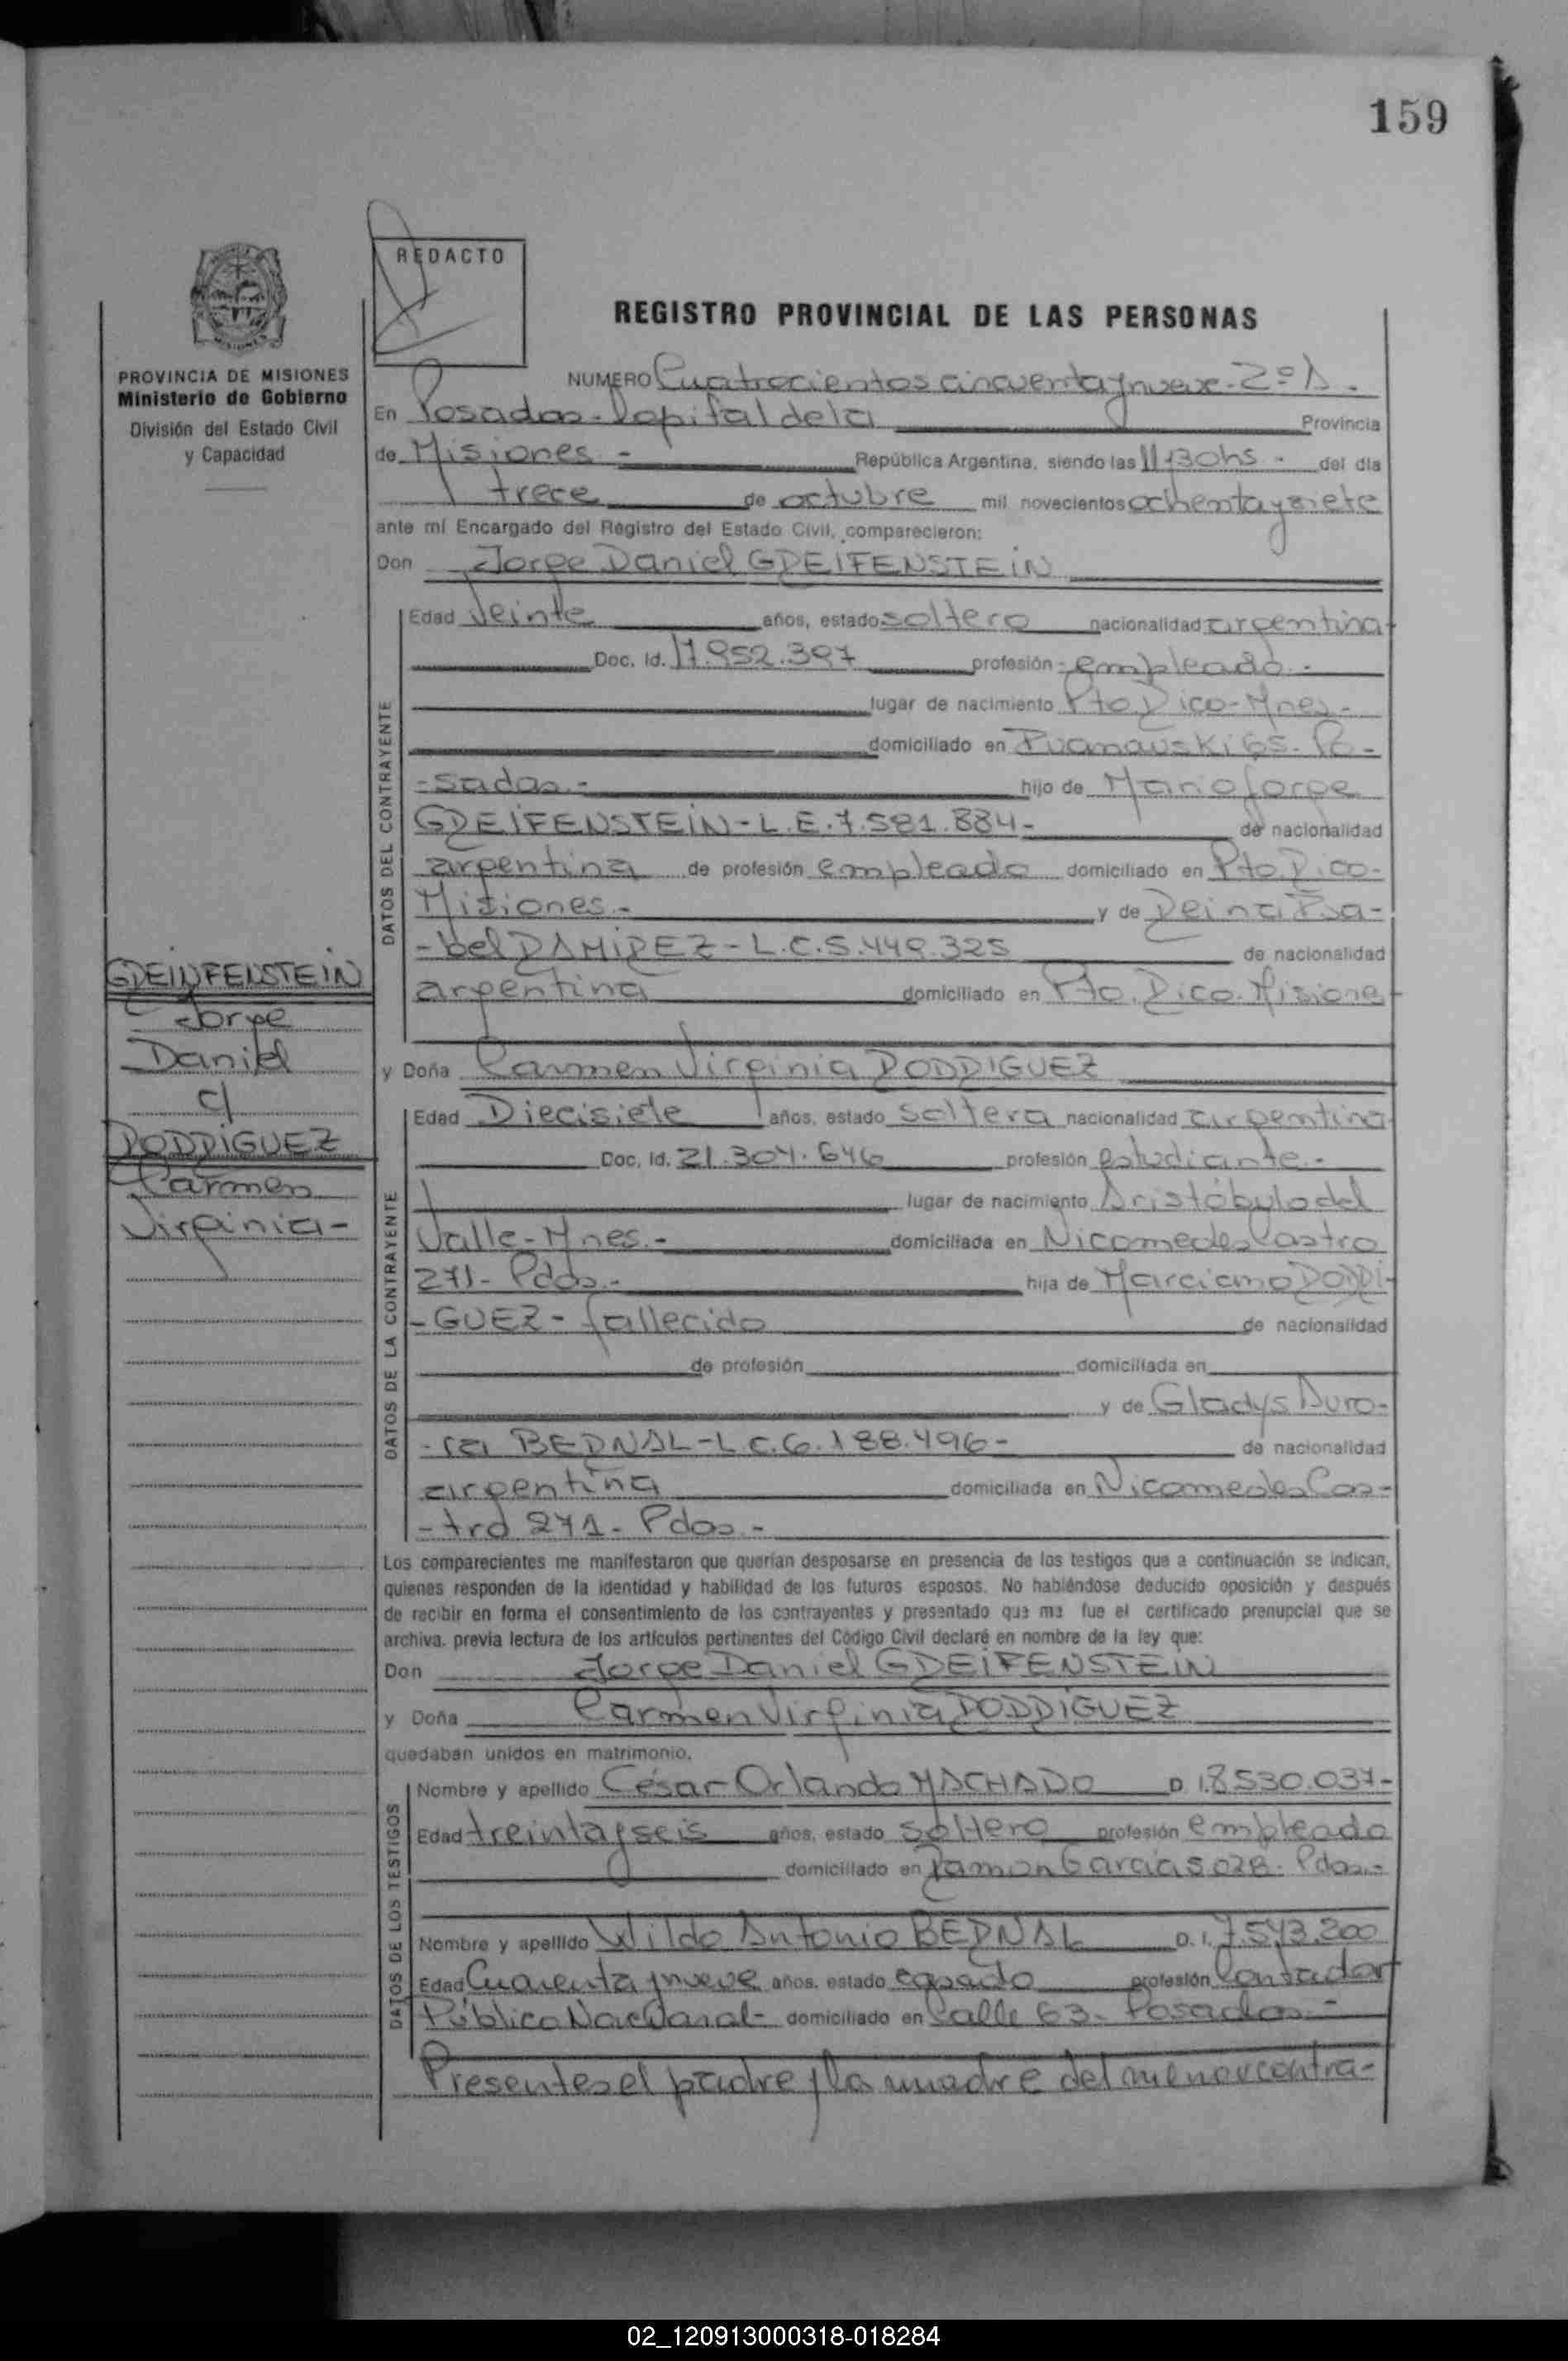 159
REDACTO
REGISTRO PROVINCIAL DE LAS PERSONAS
PROVINCIA DE MISIONES
Ministerio de Gobierno
División del Estado Civil
y Capacidad
NUMERO Cuatrocientos cincuenta y nueve - 2º A -
En Posadas - Capital de la Provincia
de Misiones - República Argentina, siendo las 11,30 hs - del día
trece de octubre mil novecientos ochenta y siete
ante mí Encargado del Registro del Estado Civil, comparecieron:
Don Jorge Daniel GREIFENSTEIN
DATOS DEL CONTRAYENTE
Edad Veinte años, estado soltero nacionalidad argentina
Doc. Id. 17.952.397 profesión empleado -
lugar de nacimiento Pto Rico - Mnes -
domiciliado en 65 - Po -
- sadas - hijo de Mario Jorge
GREIFENSTEIN - L.E. 7.581.884 - de nacionalidad
argentina de profesión empleado domiciliado en Pto. Rico -
Misiones - y de Reina Isa -
- bel RAMIREZ - L.C. 5.449.325 de nacionalidad
argentina domiciliado en Pto. Rico. Misiones
GREINFENSTEIN
Jorge
Daniel
c/
RODRIGUEZ
Carmen
Virginia -
y Doña Carmen Virginia RODRIGUEZ
DATOS DE LA CONTRAYENTE
Edad Diecisiete años, estado soltera nacionalidad argentina
Doc. Id. 21.304.646 profesión estudiante -
lugar de nacimiento Aristóbulo del
Valle - Mnes. - domiciliada en Nicomedes Castro
271 - Pdas. - hija de Marciano RODRI -
- GUEZ - fallecido de nacionalidad
de profesión domiciliada en
y de Gladys Auro -
- ra BERNAL - L.C. 6.188.496 - de nacionalidad
argentina domiciliada en Nicomedes Cas -
- tro 271 - Pdas. -
Los comparecientes me manifestaron que querían desposarse en presencia de los testigos que a continuación se indican,
quienes responden de la identidad y habilidad de los futuros esposos. No habiéndose deducido oposición y después
de recibir en forma el consentimiento de los contrayentes y presentado que me fue el certificado prenupcial que se
archiva, previa lectura de los artículos pertinentes del Código Civil declaré en nombre de la ley que:
Don Jorge Daniel GREIFENSTEIN
y Doña Carmen Virginia RODRIGUEZ
quedaban unidos en matrimonio.
DATOS DE LOS TESTIGOS
Nombre y apellido César Orlando MACHADO D. I. 8.530.037 -
Edad treinta y seis años, estado soltero profesión empleado
domiciliado en Ramon Garcia 5028 - Pdas. -
Nombre y apellido Wildo Antonio BERNAL D. I. 7.543.200
Edad Cuarenta y nueve años, estado casado profesión Contador
Público Nacional - domiciliado en Calle 63 - Posadas -
Presentes el padre y la madre del menor contra -
02_120913000318-018284